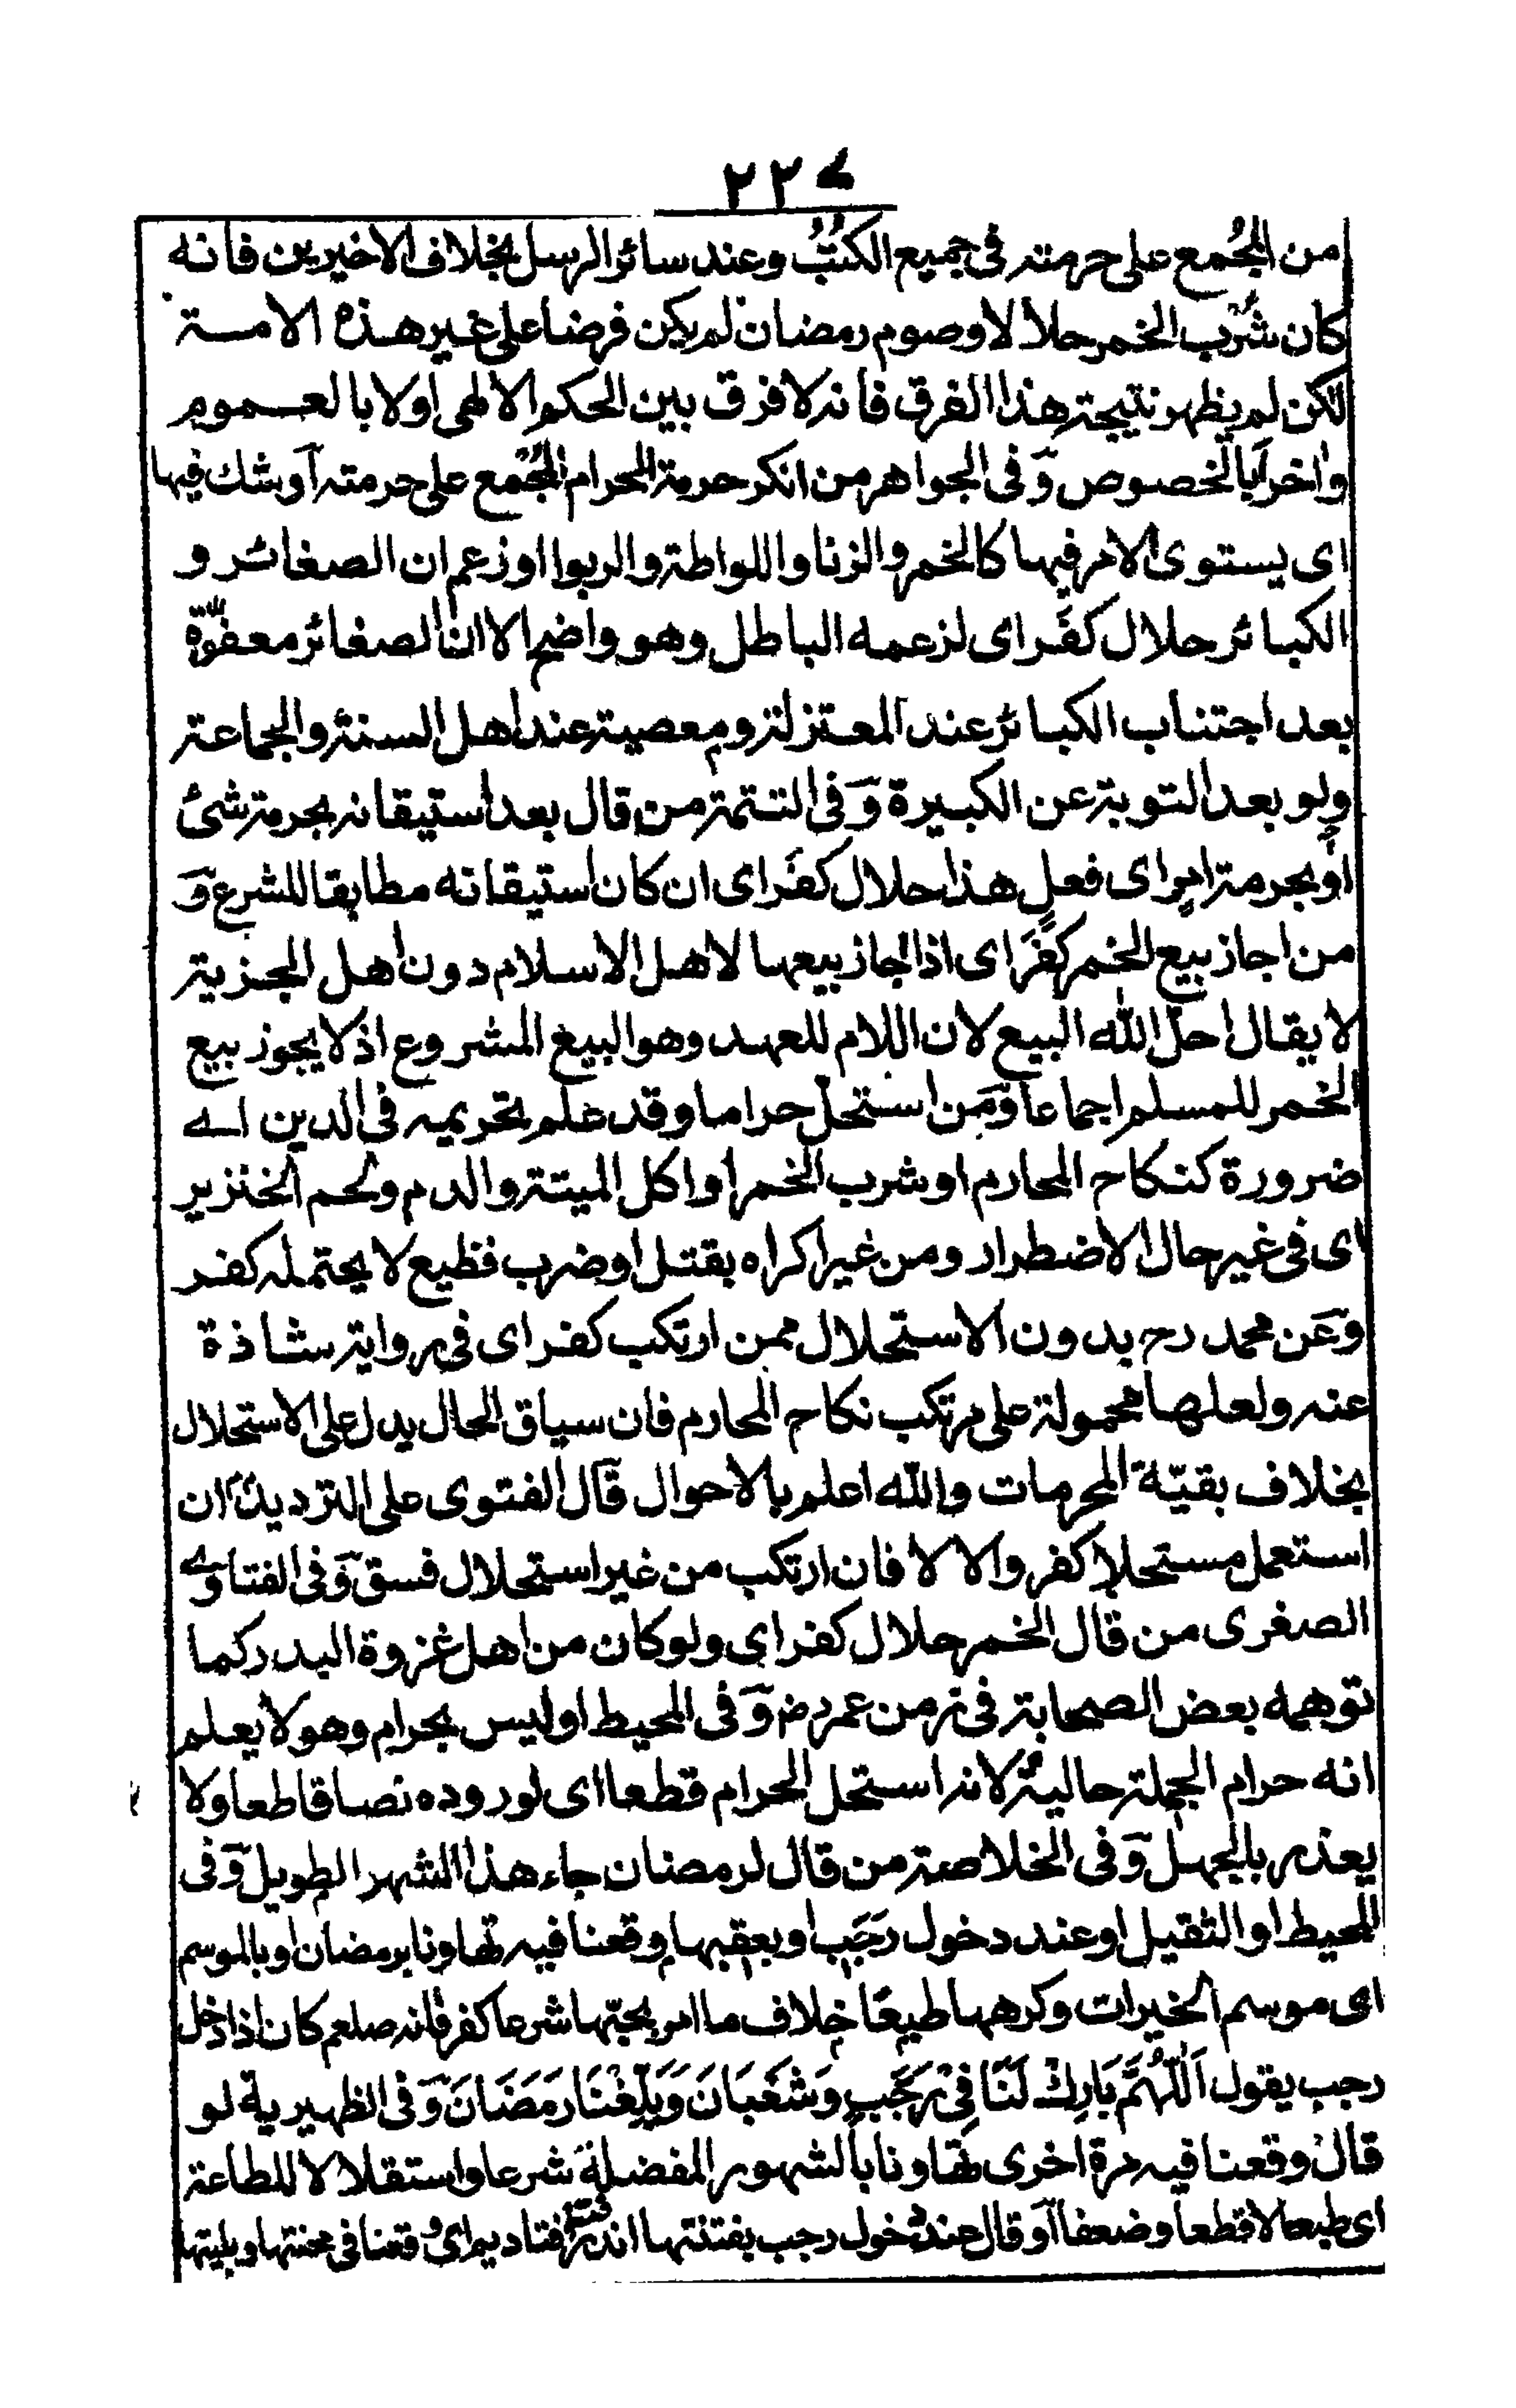 ٢٢٧
من المُجمع على حرمته فى جميع الكتُبُ وعند سائر الرسل بخلاف الاخيرين فانه
كان شُرب الخمر حلالا لا وصوم رمضان لم يكن فرضا على غير هذه الامة
لكن لم يظهر نتيجة هذا الفرق فانه لا فرق بين الحكم الالهى اولا بالعموم
واخرا بالخصوص وَفى الجواهر من انكر حرمة الحرام المُجمع على حرمته آو شك فيها
اى يستوى الامر فيها كالخمر والزنا واللواطة والربوا او زعم ان الصغائر و
الكبائر حلال كفَر اى لزعمه الباطل وهو واضح الا ان الصغائر معفوّة
بعد اجتناب الكبائر عند المعتزلة ومعصية عند اهل السنة والجماعة
ولو بعد التوبة عن الكبيرة وَفى التتمة من قال بعد استيقانه بحرمة شئ
او بحرمة امر اى فعل هذا حلال كفَر اى ان كان استيقانه مطابقا للشرع وَ
من اجاز بيع الخمر كفَر اى اذا اجاز بيعها لاهل الاسلام دون اهل الجزية
لا يقال احلّ الله البيع لان اللام للعهد وهو البيع المشروع اذ لا يجوز بيع
الخمر للمسلم اجماعا وَمَن استحلّ حراما وقد علم تحريمه فى الدين اے
ضرورة كنكاح المحارم او شرب الخمر او اكل الميتة والدم ولحم الخنزير
اى فى غير حال الاضطرار ومن غير اكراه بقتل او ضرب فظيع لا يحتمله كفر
وَعَن محمد رح بدون الاستحلال ممن ارتكب كفر اى فى رواية شاذة
عنه ولعلها محمولة على مرتكب نكاح المحارم فان سياق الحال يدل على الاستحلال
بخلاف بقيّة المحرمات والله اعلم بالاحوال قال الفتوى على الترديد ان
استعمل مستحلا كفر والا لا فان ارتكب من غير استحلال فسق وَفى الفتاوے
الصغرى من قال الخمر حلال كفر اى ولو كان من اهل غزوة البدر كما
توهمه بعض الصحابة فى زمن عمر رض وَفى المحيط او ليس بحرام وهو لا يعلم
انه حرام الجملة حالية لانه استحل الحرام قطعا اى لوروده نصا قاطعا ولا
يعذر بالجهل وَفى الخلاصة من قال لرمضان جاء هذا الشهر الطويل وَفى
المحيط او الثقيل او عند دخول رَجَب او بعقبها وقعنا فيه تهاونا برمضان او بالموسم
اى موسم الخيرات وكرهها طبعًا خلاف ما امر بحبّها شرعا كفر فانه صلعم كان اذا دخل
رجب يقول اَللّٰهُمَّ بَارِكْ لَنَا فِىْ رَجَبٍ وَشَعْبَانَ وَبَلِّغْنَا رَمَضَانَ وَفى الظهيرية لو
قال وقعنا فيه مرة اخرى تهاونا بالشهور المفضلة شرعا واستقلالا للطاعة
اى طبعا لا قطعا وضعفا آو قال عند دخول رجب بفتنتها اندر فتاديم اى وقعنا فى محنتها وبليتها